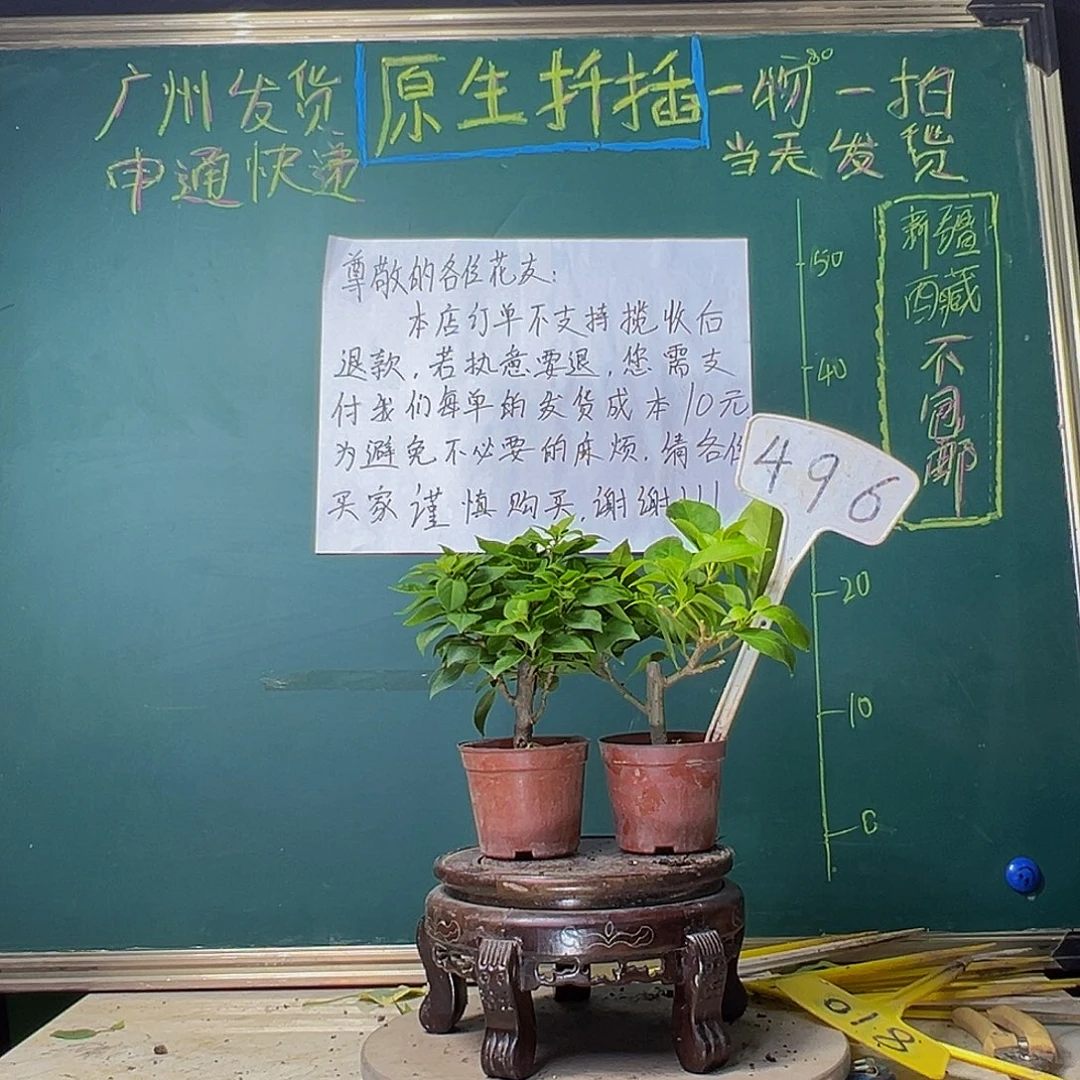 广州发货
申通快递
原生扦插
一物一拍
当天发货
尊敬的各位花友:
本店订单不支持揽收后
退款,若执意要退,您需支
付我们每单的发货成本10元
为避免不必要的麻烦,请各位
买家谨慎购买,谢谢!!!
新疆
西藏
不
包
邮
50
40
20
10
0
496
018